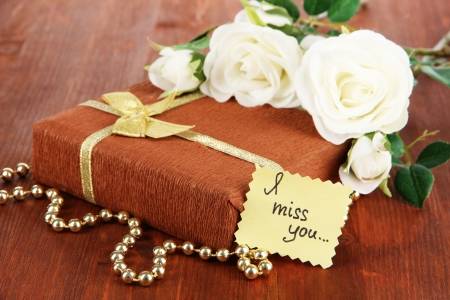 I
miss
you...